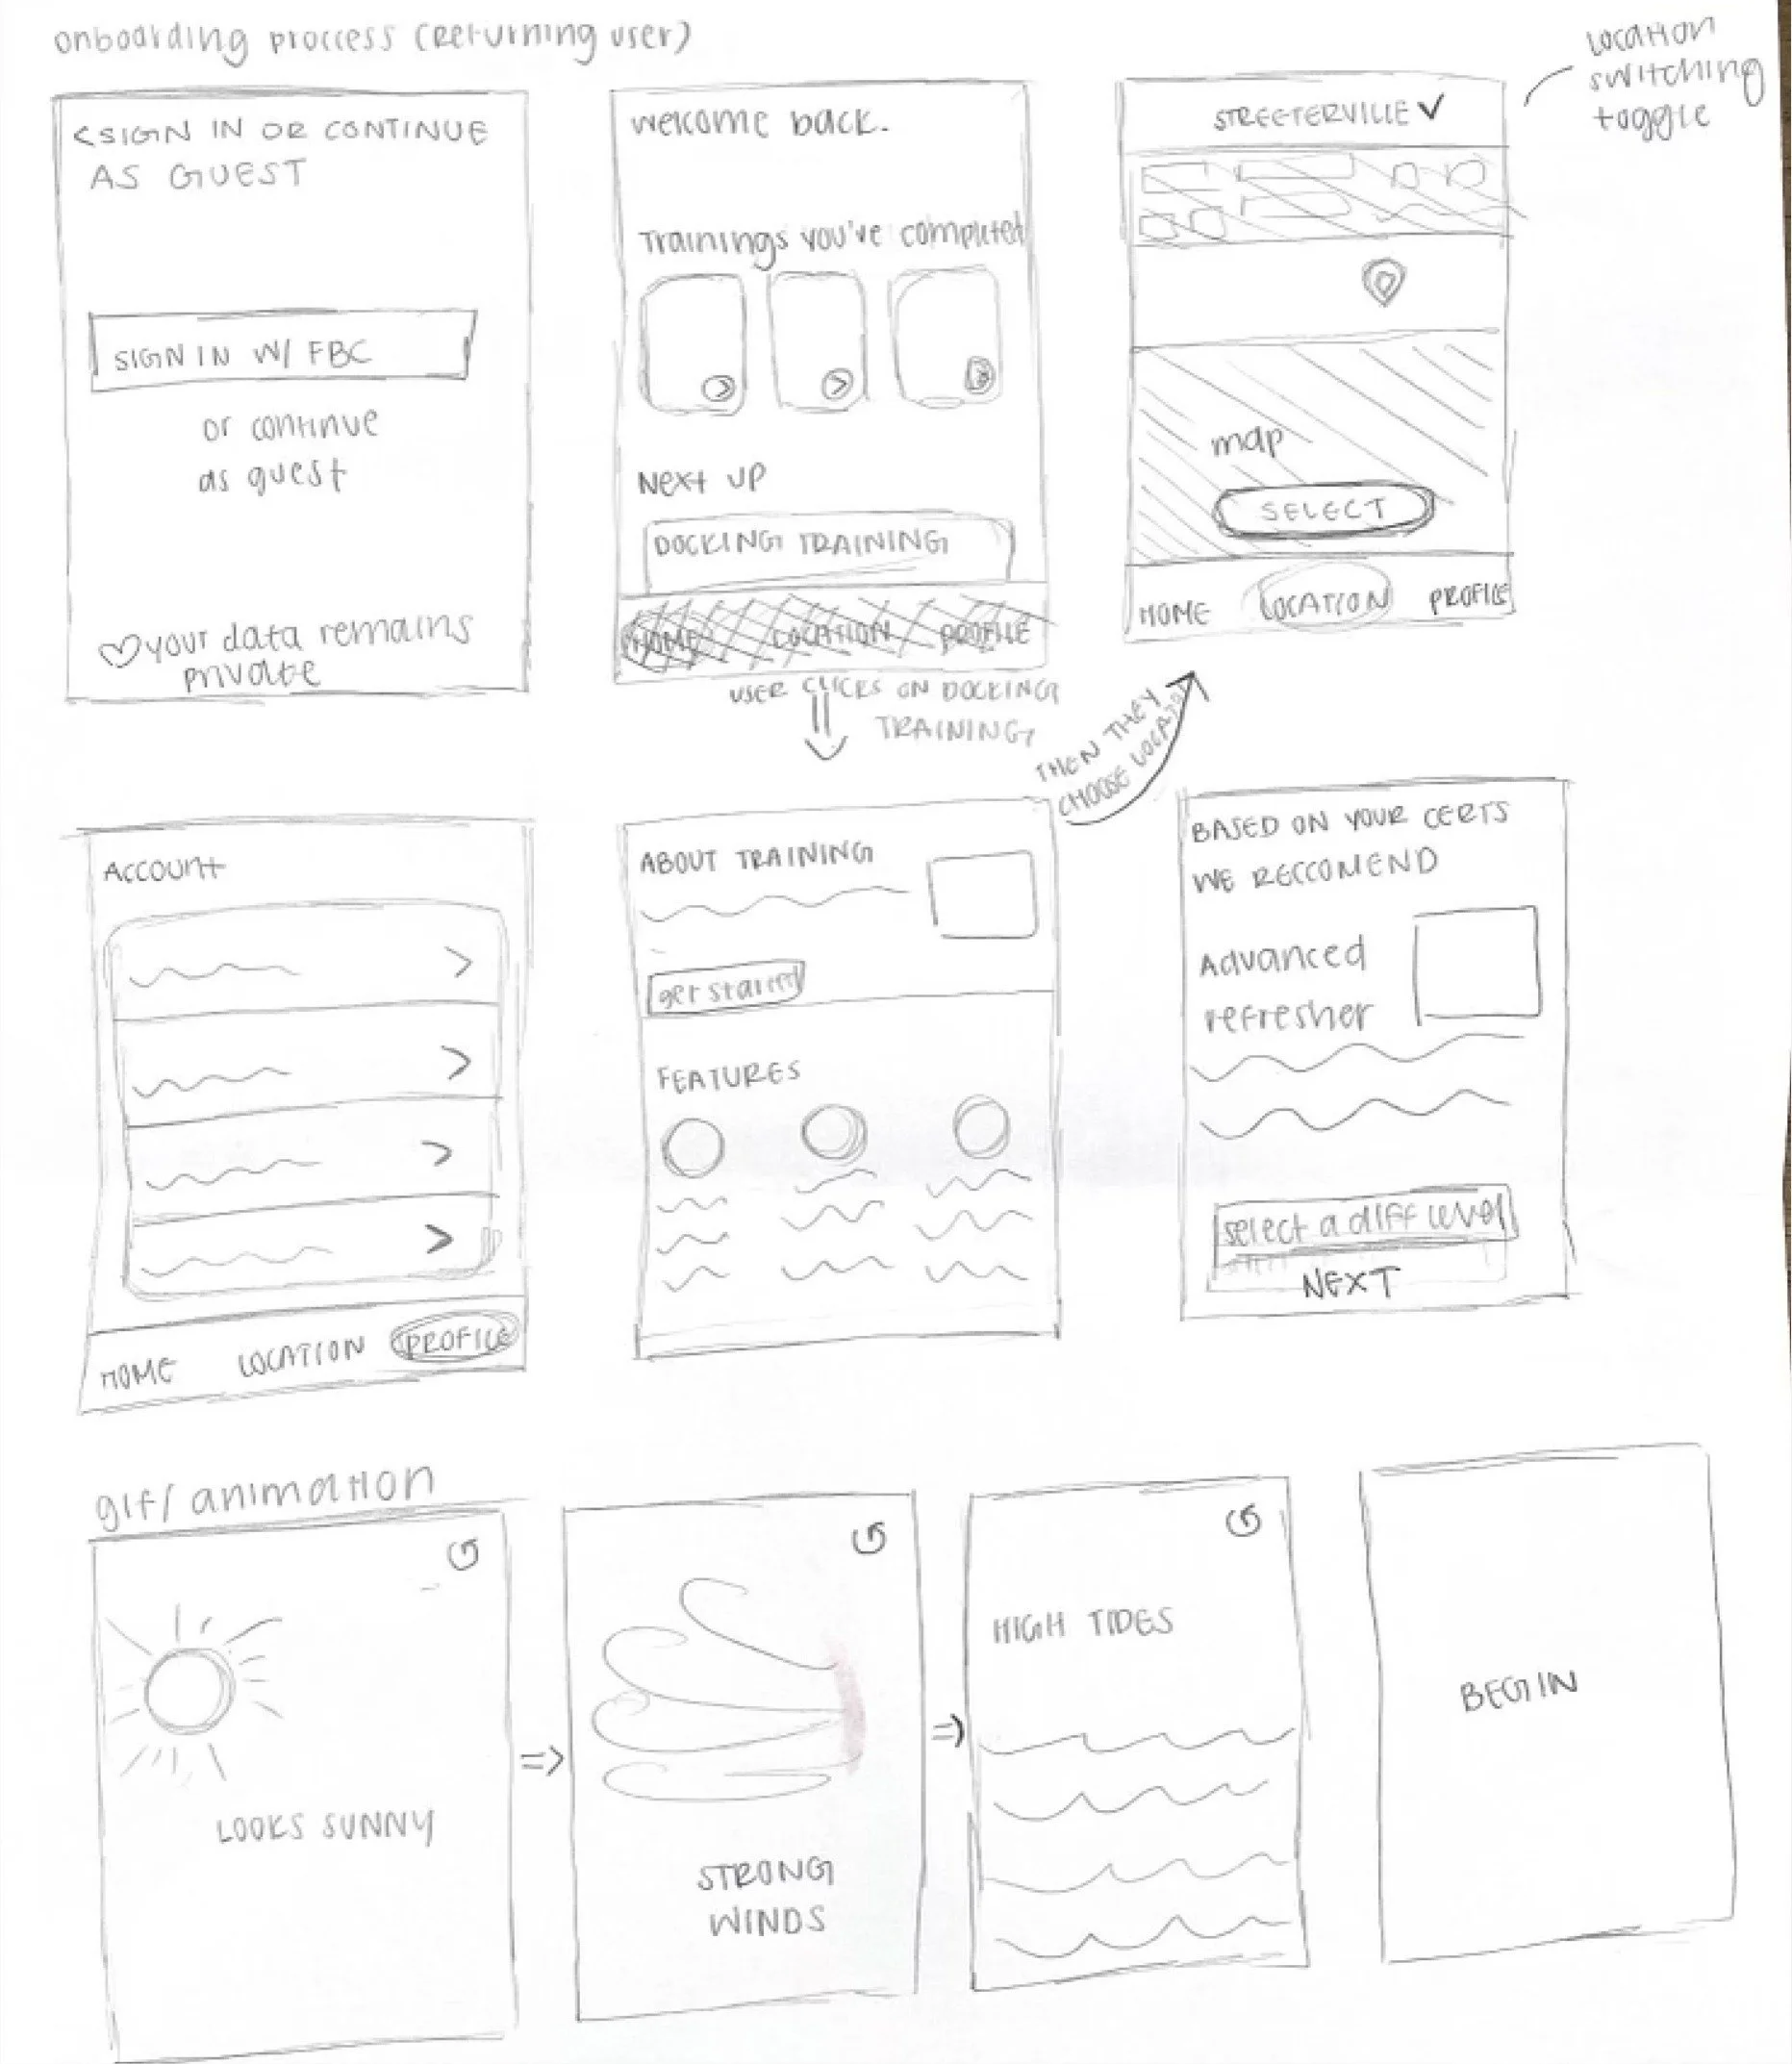 onboarding proccess (returning user)
LOCATION
switching
toggle
<SIGN IN OR CONTINUE
AS GUEST
SIGN IN W/ FBC
or continue
as guest
your data remains
private
welcome back.
Trainings you've completed
Next up
DOCKING TRAINING
HOME LOCATION PROFILE
STREETERVILLE
map
SELECT
HOME LOCATION PROFILE
USER CLICKS ON DOCKING
TRAINING
THEN THEY
CHOOSE LOCATION
Account
HOME LOCATION PROFILE
ABOUT TRAINING
get started
FEATURES
BASED ON YOUR CERTS
WE RECCOMEND
Advanced
refresher
select a diff level
NEXT
gif/animation
LOOKS SUNNY
STRONG
WINDS
HIGH TIDES
BEGIN